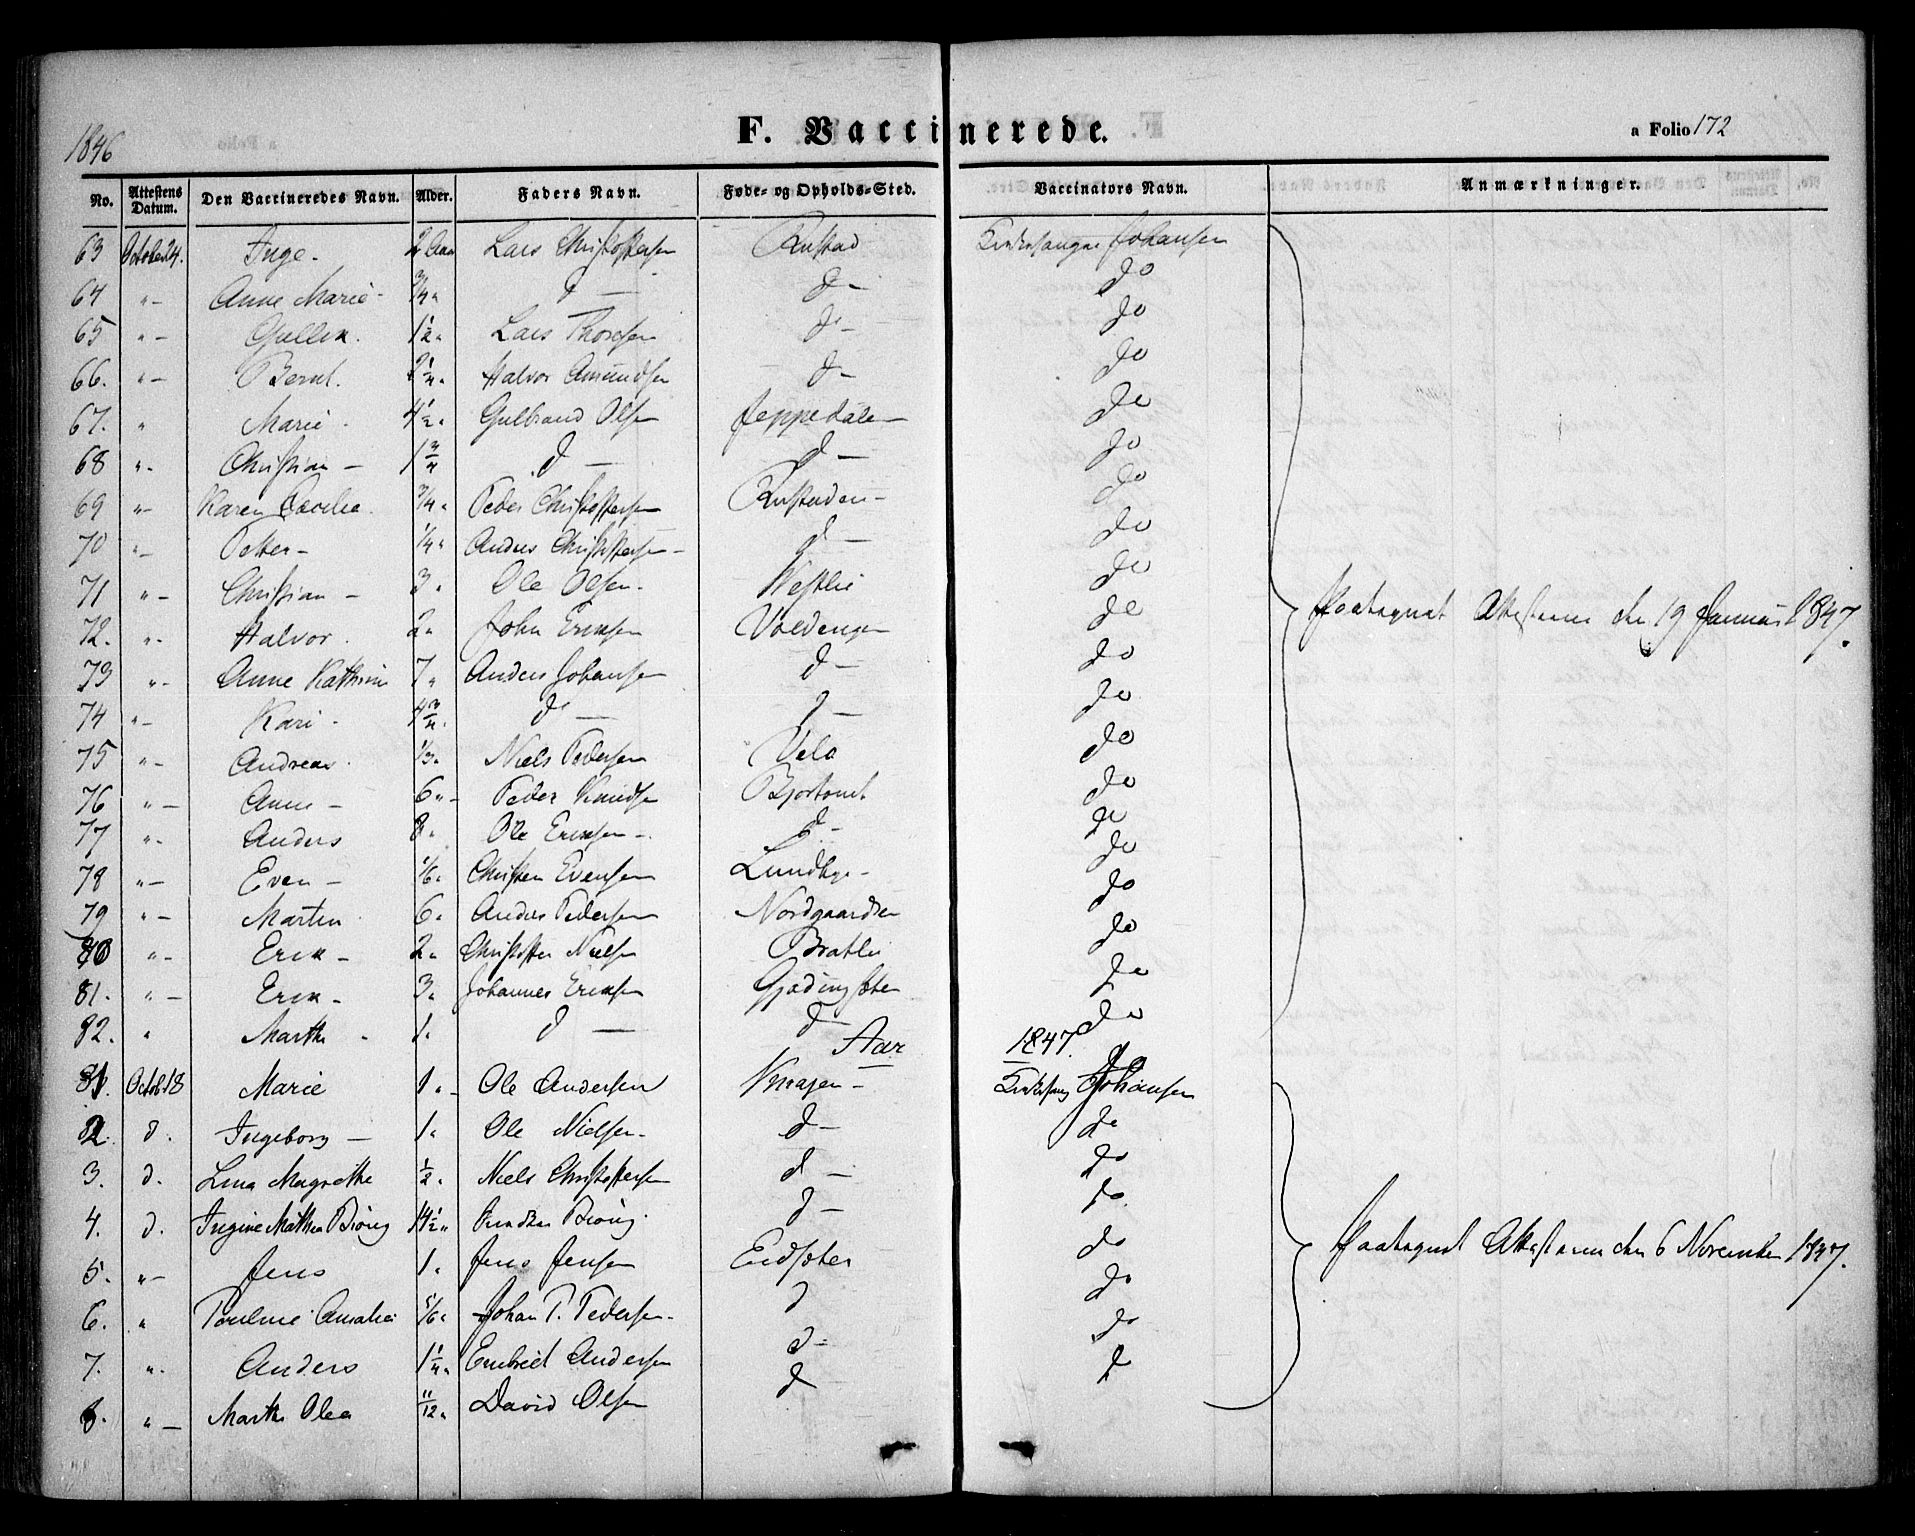 1846
F. Vaccinerede.
a Folio 172
No. Attestens Datum. Den Vaccineredes Navn. Alder. Faders Navn. Føde- og Opholds-Sted. Vaccinators Navn. Anmærkninger.
63 October 24. Inge. 2 Aar Lars Christoffersen Rustad Kirkesanger Johansen
64 "- Anne Marie- 3/4 " d - d- do
65 "- Gullik. 1 1/2 " Lars Thoresen d- do
66. "- Bernt. 2 1/4 " Halvor Amundsen d- do
67. " Marie 4 1/2 " Gulbrand Olsen Jeppedalen do
68 "- Christian - 1 3/4 d - d - do
69 "- Karen Cecilie 3/4 " Peder Christoffersen Rustaden- do
70 "- Petter- 1/4 " Anders Christoffersen- d - do
71 "- Christian - 3 " Ole Olsen. Westlie do
72. "- Halvor. 2 " John Eriksen Voldengen do
Paategnet Attesterne den 19 Januar 1847.
73 "- Anne Kathrine 7 " Anders Johansen d - do
74 "- Kari - 4 3/4 " d - d - do
75 "- Andreas. 1/3 " Niels Pedersen Velo do
76 "- Anne - 6 "- Peder Knudsen do
77 "- Anders 8 " Ole Eriksen-. d- do
78 "- Even - 1/6 " Christen Evensen Lundbye- do
79 "- Martin 6 " Anders Pedersen Nordgaarden do
80 "- Erik - 2 " Christoffer Nielsen Bratlie do
81. "- Erik - 3 " Johannes Eriksen Gjødingsæter do
82. " Marthe - 1 " d - d - do
Aar 1847.
1. Octob 18 Marie 1 "- Ole Andersen Knajen - Kirkesang Johansen
2. d. Ingeborg - 1 " Ole Nielsen. d- do
3. d. Lina Magrethe 1/2 " Niels Christoffersen d - do
4. d. Ingine Mathea Bröng 14 1/2 " Bröng. d - do
5. "- Jens 1 " Jens Jensen Eidsæter do
Paategnet Attesterne den 6 November 1847.
6. " Pouline Amalie 5/6 " Johan P. Pedersen. d do
7. " Anders 1 1/4 " Embret Andersen d- do
8. "- Marthe Olea 11/12 " David Olsen d d